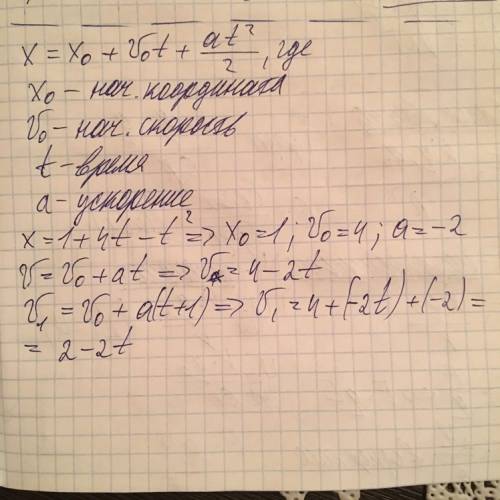 x = x₀ + v₀t + at²/2, где
x₀ - нач. координата
v₀ - нач. скорость
t - время
a - ускорение
x = 1 + 4t - t² => x₀ = 1; v₀ = 4; a = -2
v = v₀ + at => v = 4 - 2t
v₁ = v₀ + a(t+1) => v₁ = 4 + (-2t) + (-2) =
= 2 - 2t